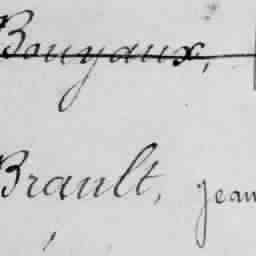 Bouyaux,
Brault, Jean